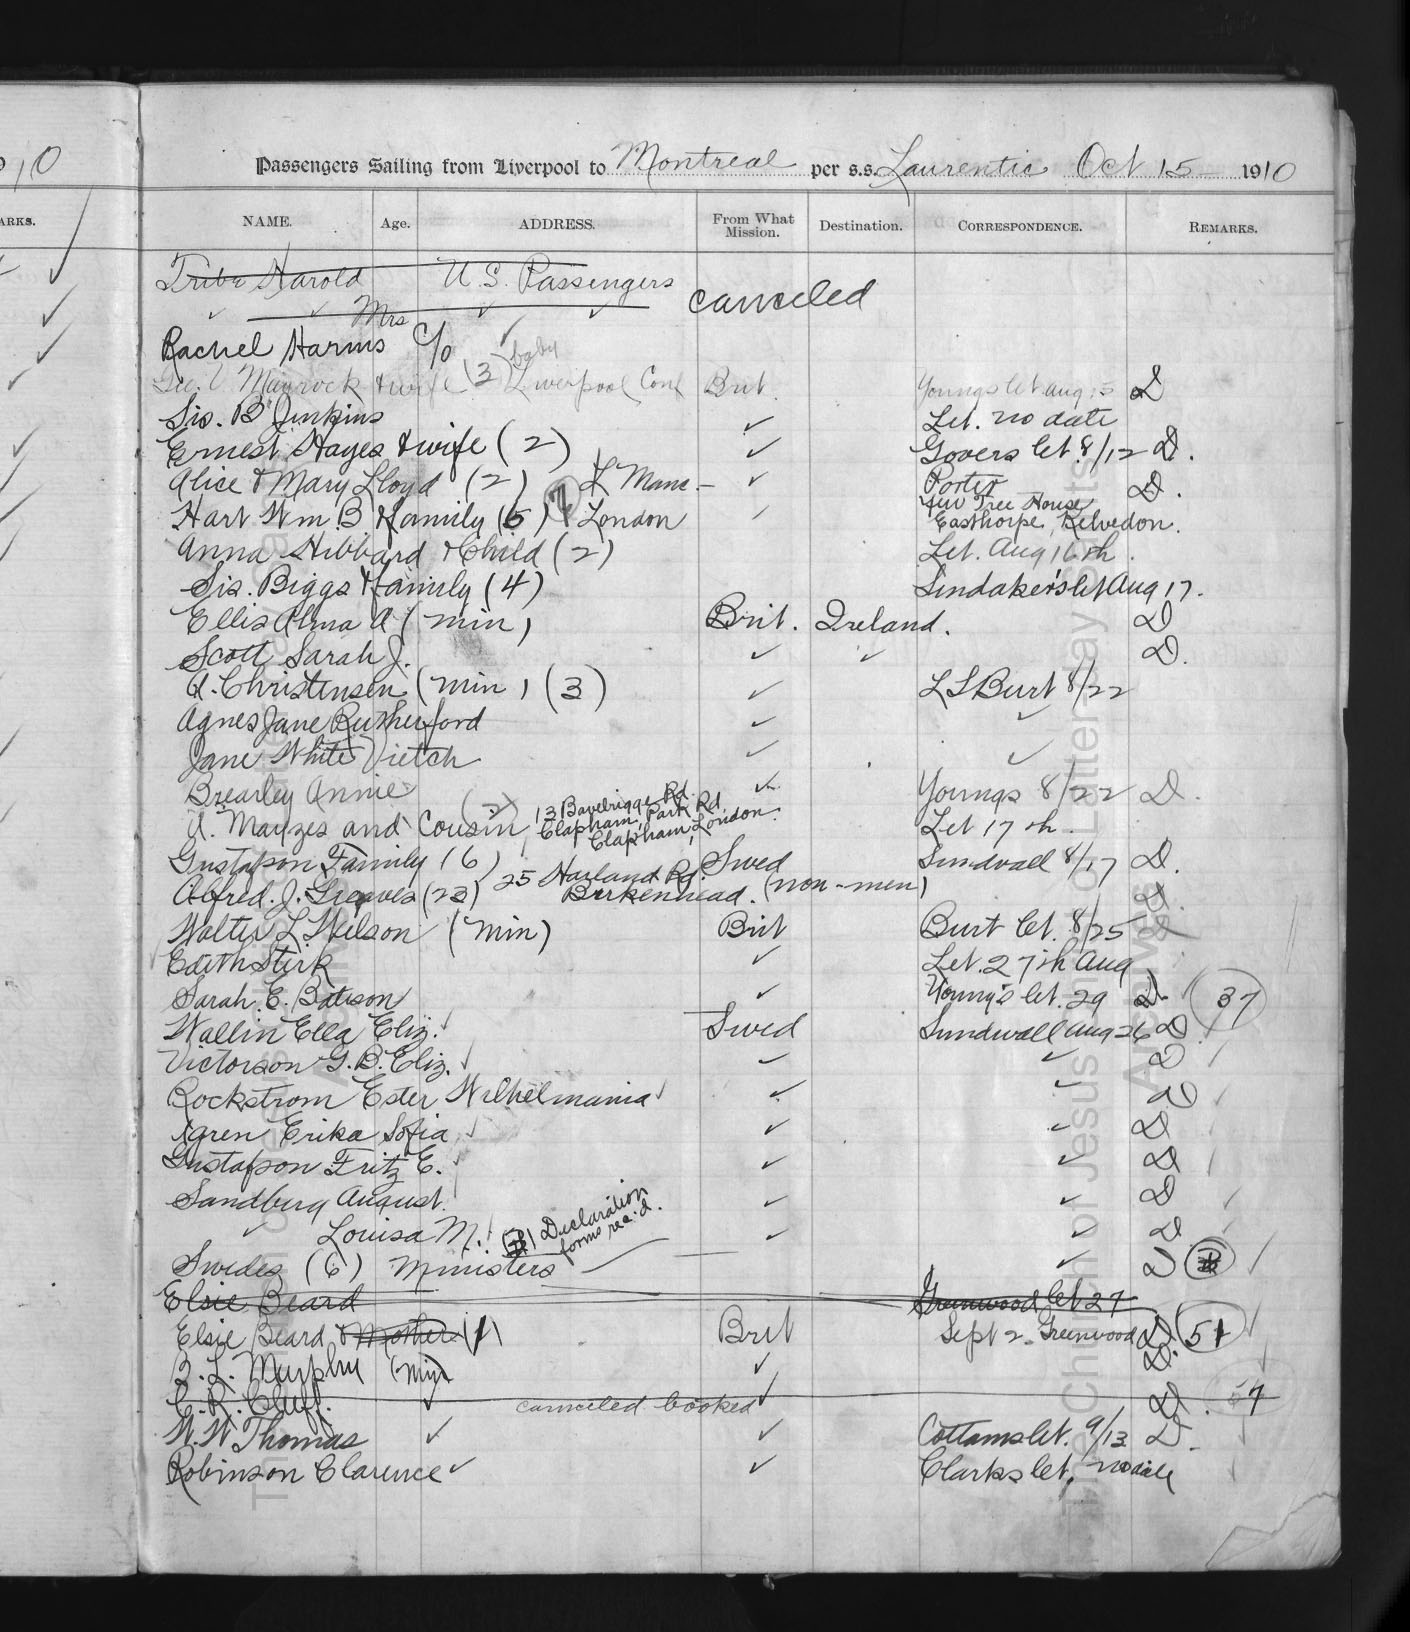 10
Passengers Sailing from Liverpool to Montreal per s.s. Laurentic Oct 15 1910
ARKS.
NAME. Age. ADDRESS. From What Mission. Destination. CORRESPONDENCE. REMARKS.
Tribe Harold U.S. Passengers canceled
✓ ✓ Mrs ✓ ✓
Rachel Harms c/o ✓
Geo. & wife (3) baby Liverpool Conf Brit. Youngs let Aug 15 D
Sis. B Jenkins ✓ Let. no date
Ernest Hayes & wife (2) ✓ Govers let. 8/12 D.
Alice & Mary Lloyd (2) ✓ Porter D.
Hart Wm. B & family (5) 7 London ✓ Tree House Easthorpe, Kelvedon.
Anna Hibbard & Child (2) Let. Aug 16th.
Sis. Biggs & family (4) Lindaker's let Aug 17.
Ellis Alma A (min) Brit. Ireland. D
Scott Sarah J. ✓ ✓ D.
A. Christensen (min) (3) ✓ L S Burt 8/22
Agnes Jane Rutherford ✓ ✓
Jane White Vietch ✓ ✓
Brearley Annie ✓ Youngs 8/22 D.
and Cousin (2) 13 Rd. Clapham, Park Rd Clapham, London. Let 17th.
Gustafson Family (6) Swed Sundvall 8/17 D.
Alfred. J. Greaves (23) 25 Harland Rd. Birkenhead. (non-mem) D.
Walter L. Wilson (min) Brit Burt let. 8/25
Edith Stirk ✓ Let. 27th Aug
Sarah. E. Batison ✓ Young's let. 29 D. 37
Wallin Ella Eliz. ✓ Swed Sundwall Aug 26 D
Victorson G. B. Eliz. ✓ ✓ ✓ D
Rockstrom Ester Wilhelmania ✓ ✓ ✓ D
Agren Erika Sofia ✓ ✓ ✓ D
Gustafson Fritz E. ✓ ✓ ✓ D
Sandburg August. ✓ ✓ D
✓ Louisa M. Declaration forms rec'd. ✓ ✓ D
Swedes (6) Ministers ✓ D
Elsie Beard Greenwood let 27
Elsie Beard & Mother (1) Brit Sept 2 Greenwood D. 51
Murphy (min) ✓ D.
C. R. Cluff. ✓ canceled booked ✓ D. 57
W. W Thomas ✓ ✓ Cottams let. 9/13 D.
Robinson Clarence ✓ ✓ Clarks let. no date